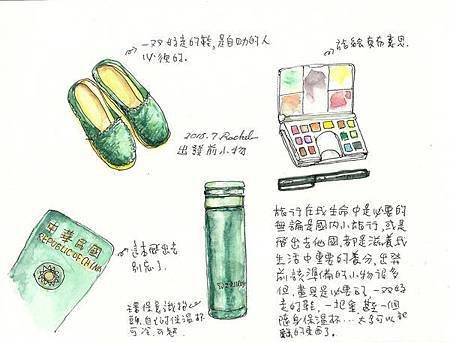 一双好走的鞋,是自助的人
必須的.
繪真有意思.
2015.7 Rachel
出發前小物
中華民國
REPUBLIC OF CHINA
飛出去
別忘了.
環保意識抬
頭,自己的保溫杯
可冷.可熱
旅行在我生命中是必要的
無論是國內小旅行,或是
飛出去他國,都是滋養我
生活中重要的養分,出發
前該準備的小物很多
但畫具是必要的,一双好
走的鞋,一起畫,甚至一個
隨身保溫杯...可以記
錄的東西了.